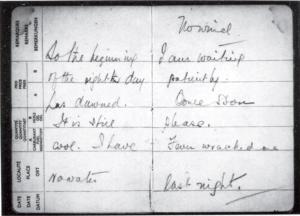 REMARQUES
REMARKS
BEMERKUNGEN
PRIX
PRICE
PREIS
QUANTITE
QUANTITY
LOCALITÉ
PLACE
ORT
DATE
DATE
DATUM
So the beginning
of the eighth day
has dawned.
It is still
cool. I have
No water
No wind
I am waiting
patiently.
Come soon
please.
Fever wracked me
last night.